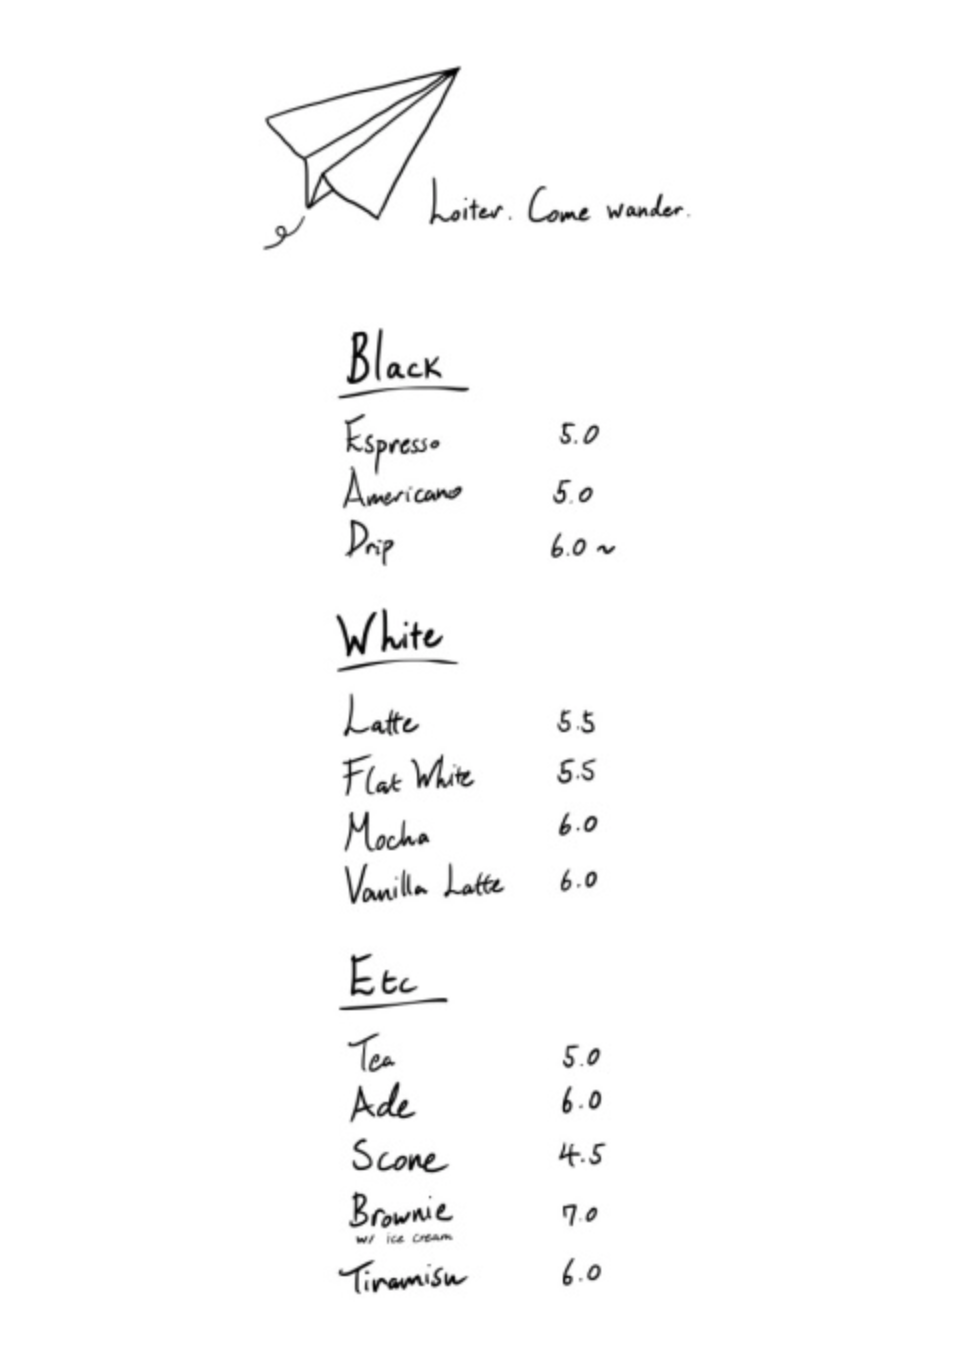 Loiter. Come wander.
Black
Espresso 5.0
Americano 5.0
Drip 6.0 ~
White
Latte 5.5
Flat White 5.5
Mocha 6.0
Vanilla Latte 6.0
Etc
Tea 5.0
Ade 6.0
Scone 4.5
Brownie 7.0
w/ ice cream
Tiramisu 6.0